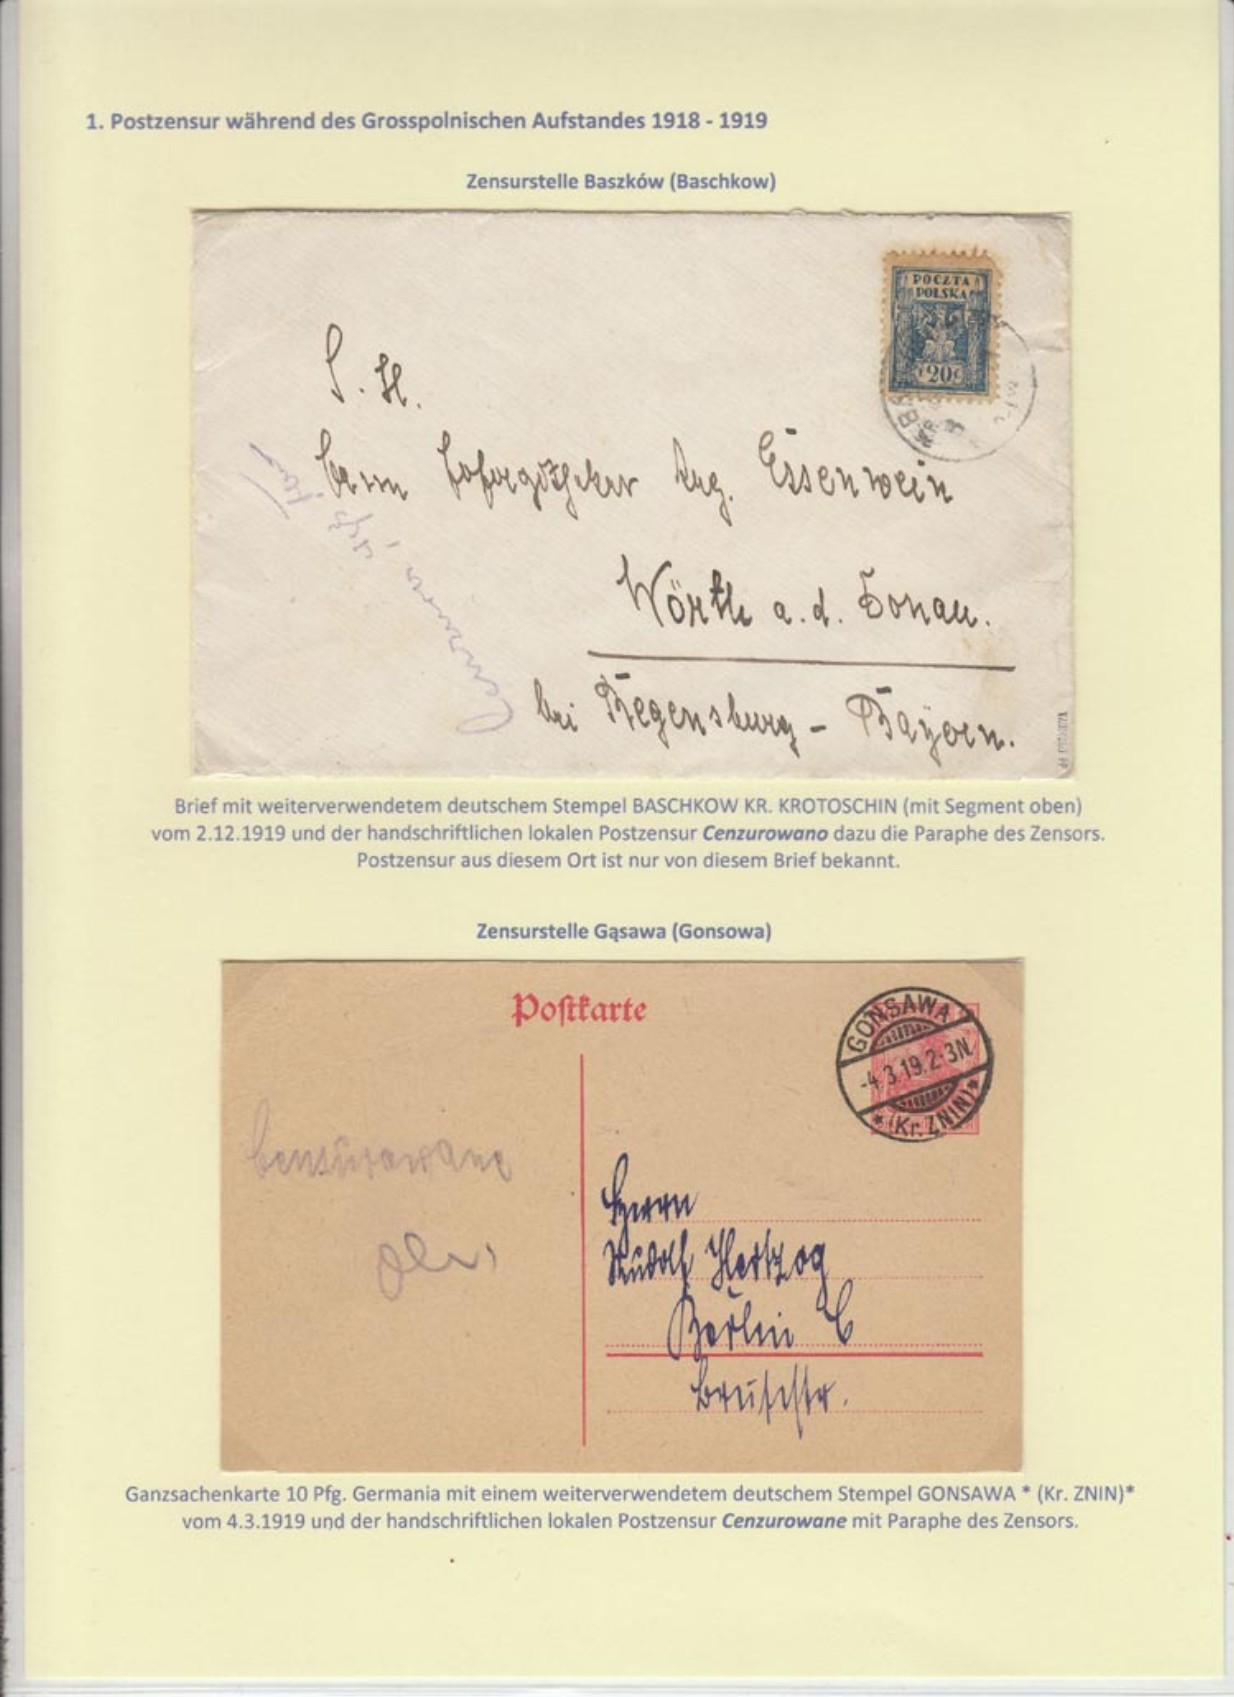 1. Postzensur während des Grosspolnischen Aufstandes 1918 - 1919
Zensurstelle Baszków (Baschkow)
POCZTA
POLSKA
20
S. H.
Herrn Essenwein
Wörth a. d. Donau.
bei Regensburg - Bayern.
Brief mit weiterverwendetem deutschem Stempel BASCHKOW KR. KROTOSCHIN (mit Segment oben)
vom 2.12.1919 und der handschriftlichen lokalen Postzensur Cenzurowano dazu die Paraphe des Zensors.
Postzensur aus diesem Ort ist nur von diesem Brief bekannt.
Zensurstelle Gąsawa (Gonsowa)
Postkarte
GONSAWA
-4.3.19.2-3N.
* (Kr. ZNIN) *
Cenzurowane
Herrn
Rudolf Hertzog
Berlin C
Breitestr.
Ganzsachenkarte 10 Pfg. Germania mit einem weiterverwendetem deutschem Stempel GONSAWA * (Kr. ZNIN)*
vom 4.3.1919 und der handschriftlichen lokalen Postzensur Cenzurowane mit Paraphe des Zensors.